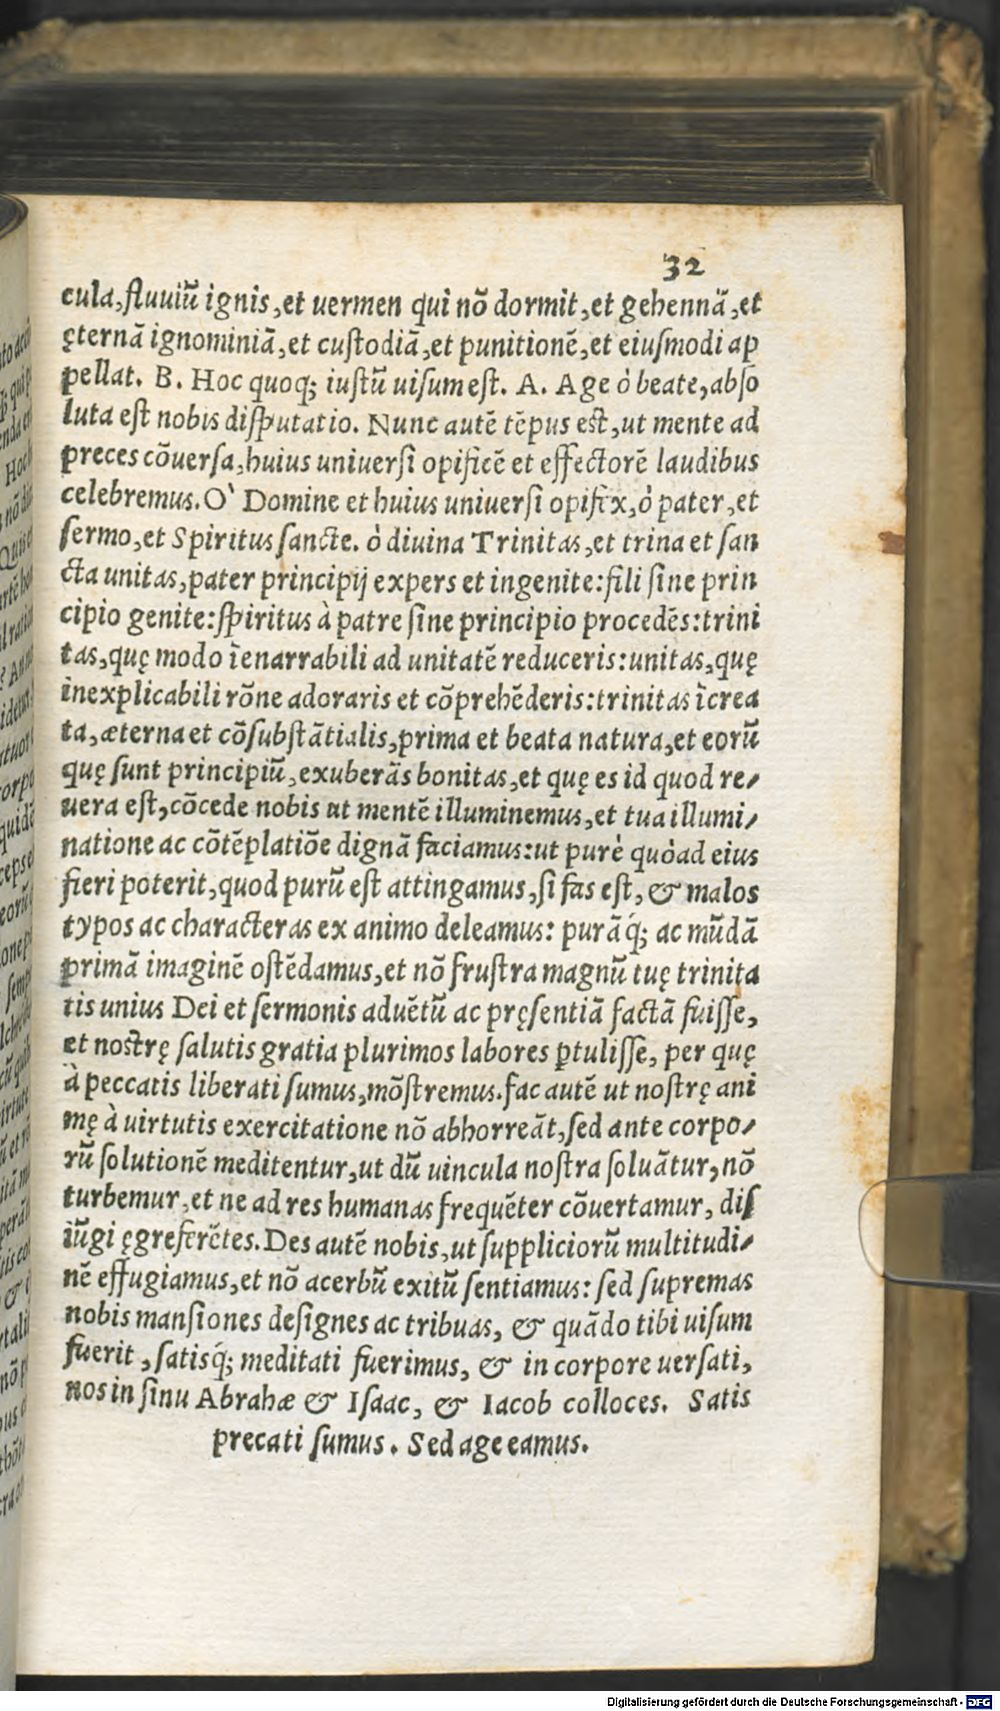 32
cula, fluuiũ ignis, et uermen qui nõ dormit, et gehennã, et
ęternã ignominiã, et custodiã, et punitionẽ, et eiusmodi ap
pellat. B. Hoc quoq; iustũ uisum est. A. Age ò beate, abso
luta est nobis disputatio. Nunc autẽ tẽpus est, ut mente ad
preces cõuersa, huius uniuersi opificẽ et effectorẽ laudibus
celebremus. O` Domine et huius uniuersi opifex, ò pater, et
sermo, et Spiritus sancte. ò diuina Trinitas, et trina et san
cta unitas, pater principij expers et ingenite: fili sine prin
cipio genite: spiritus à patre sine principio procedẽs: trini
tas, quę modo ĩenarrabili ad unitatẽ reduceris: unitas, quę
inexplicabili rõne adoraris et cõprehẽderis: trinitas ĩcrea
ta, æterna et cõsubstãtialis, prima et beata natura, et eorũ
quę sunt principiũ, exuberãs bonitas, et quę es id quod re/
uera est, cõcede nobis ut mentẽ illuminemus, et tua illumi/
natione ac cõtẽplatiõe dignã faciamus: ut purè quòad eius
fieri poterit, quod purũ est attingamus, si fas est, & malos
typos ac characteras ex animo deleamus: purãq́; ac mũdã
primã imaginẽ ostẽdamus, et nõ frustra magnũ tuę trinita
tis unius Dei et sermonis aduẽtũ ac pręsentiã factã fuisse,
et nostrę salutis gratia plurimos labores ꝑtulisse, per quę
à peccatis liberati sumus, mõstremus. fac autẽ ut nostrę ani
mę à uirtutis exercitatione nõ abhorreãt, sed ante corpo/
rũ solutionẽ meditentur, ut dũ uincula nostra soluãtur, nõ
turbemur, et ne ad res humanas frequẽter cõuertamur, dis
iũgi ęgre ferẽtes. Des autẽ nobis, ut suppliciorũ multitudi/
nẽ effugiamus, et nõ acerbũ exitũ sentiamus: sed supremas
nobis mansiones designes ac tribuas, & quãdo tibi uisum
fuerit, satisq́; meditati fuerimus, & in corpore uersati,
nos in sinu Abrahæ & Isaac, & Iacob colloces. Satis
precati sumus. Sed age eamus.
Digitalisierung gefördert durch die Deutsche Forschungsgemeinschaft - DFG